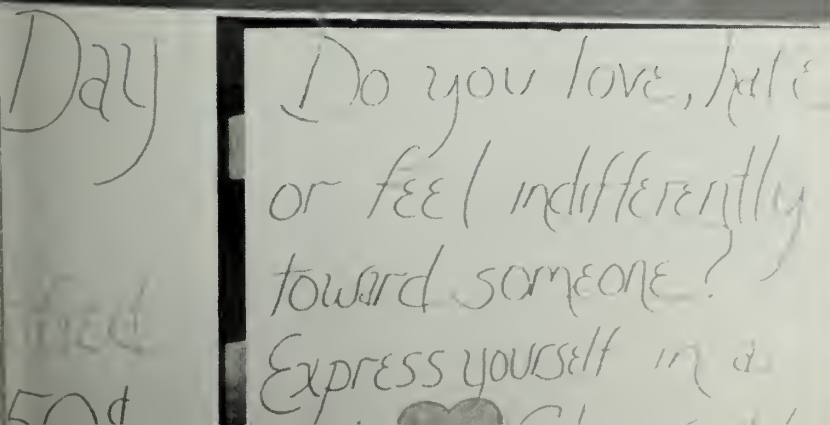 Day
50¢
Do you love, hate
or feel indifferently
toward someone?
Express yourself in a